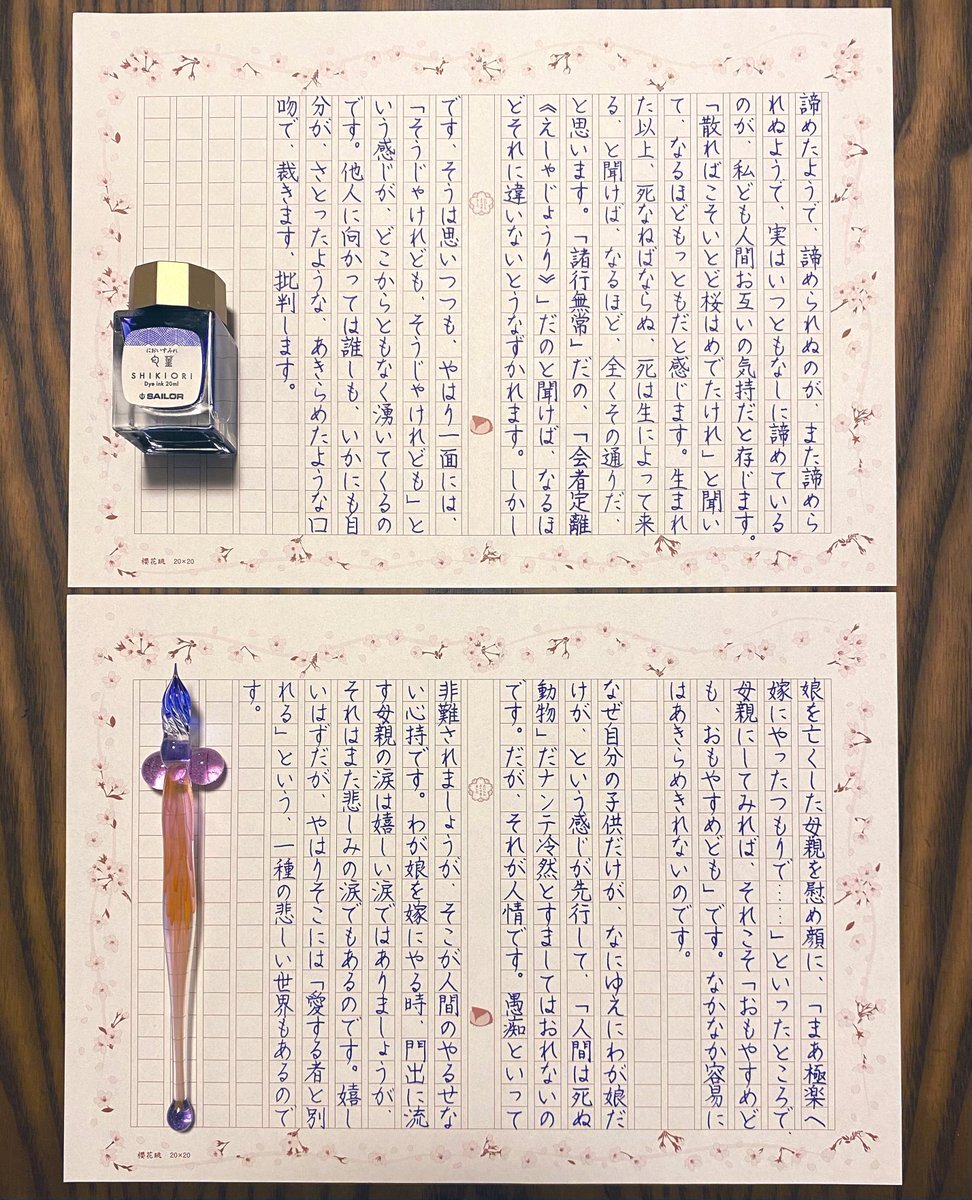 諦めたようで、諦められぬのが、また諦めら
れぬようで、実はいつともなしに諦めている
のが、私ども人間お互いの気持だと存じます。
「散ればこそいとど桜はめでたけれ」と聞い
て、なるほどもっともだと感じます。生まれ
た以上、死なねばならぬ、死は生によって来
る、と聞けば、なるほど、全くその通りだ、
と思います。「諸行無常」だの、「会者定離
《えしゃじょうり》」だのと聞けば、なるほ
どそれに違いないとうなずかれます。しかし
です、そうは思いつつも、やはり一面には、
「そうじゃけれども、そうじゃけれども」と
いう感じが、どこからともなく湧いてくるの
です。他人に向かっては誰しも、いかにも自
分が、さとったような、あきらめたような口
吻で、裁きます、批判します。
においすみれ
匂菫
SHIKIORI
Dye ink 20ml
SAILOR
櫻花眺 20×20
娘を亡くした母親を慰め顔に、「まあ極楽へ
嫁にやったつもりで……」といったところで、
母親にしてみれば、それこそ「おもやすめど
も、おもやすめども」です。なかなか容易に
はあきらめきれないのです。
なぜ自分の子供だけが、なにゆえにわが娘だ
けが、という感じが先行して、「人間は死ぬ
動物」だナンテ冷然とすましてはおれないの
です。だが、それが人情です。愚痴といって
非難されましょうが、そこが人間のやるせな
い心持です。わが娘を嫁にやる時、門出に流
す母親の涙は嬉しい涙ではありましょうが、
それはまた悲しみの涙でもあるのです。嬉し
いはずだが、やはりそこには「愛する者と別
れる」という、一種の悲しい世界もあるので
す。
櫻花眺 20×20